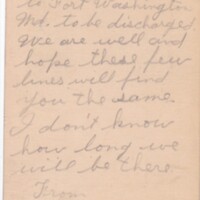 to Fort Washington
Md. to be discharged
We are well and
hope these few
lines will find
you the same.
I don't know
how long we
will be there.
From